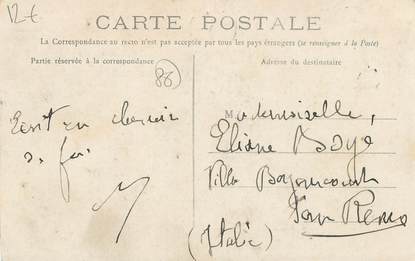 12 €
CARTE POSTALE
La Correspondance au recto n'est pas acceptée par tous les pays étrangers (se renseigner à la Poste)
Partie réservée à la correspondance
Adresse du destinataire
86
Ecrit en chemin
d. fer
Mademoiselle,
Eliane
Villa
San Remo
(Italie)